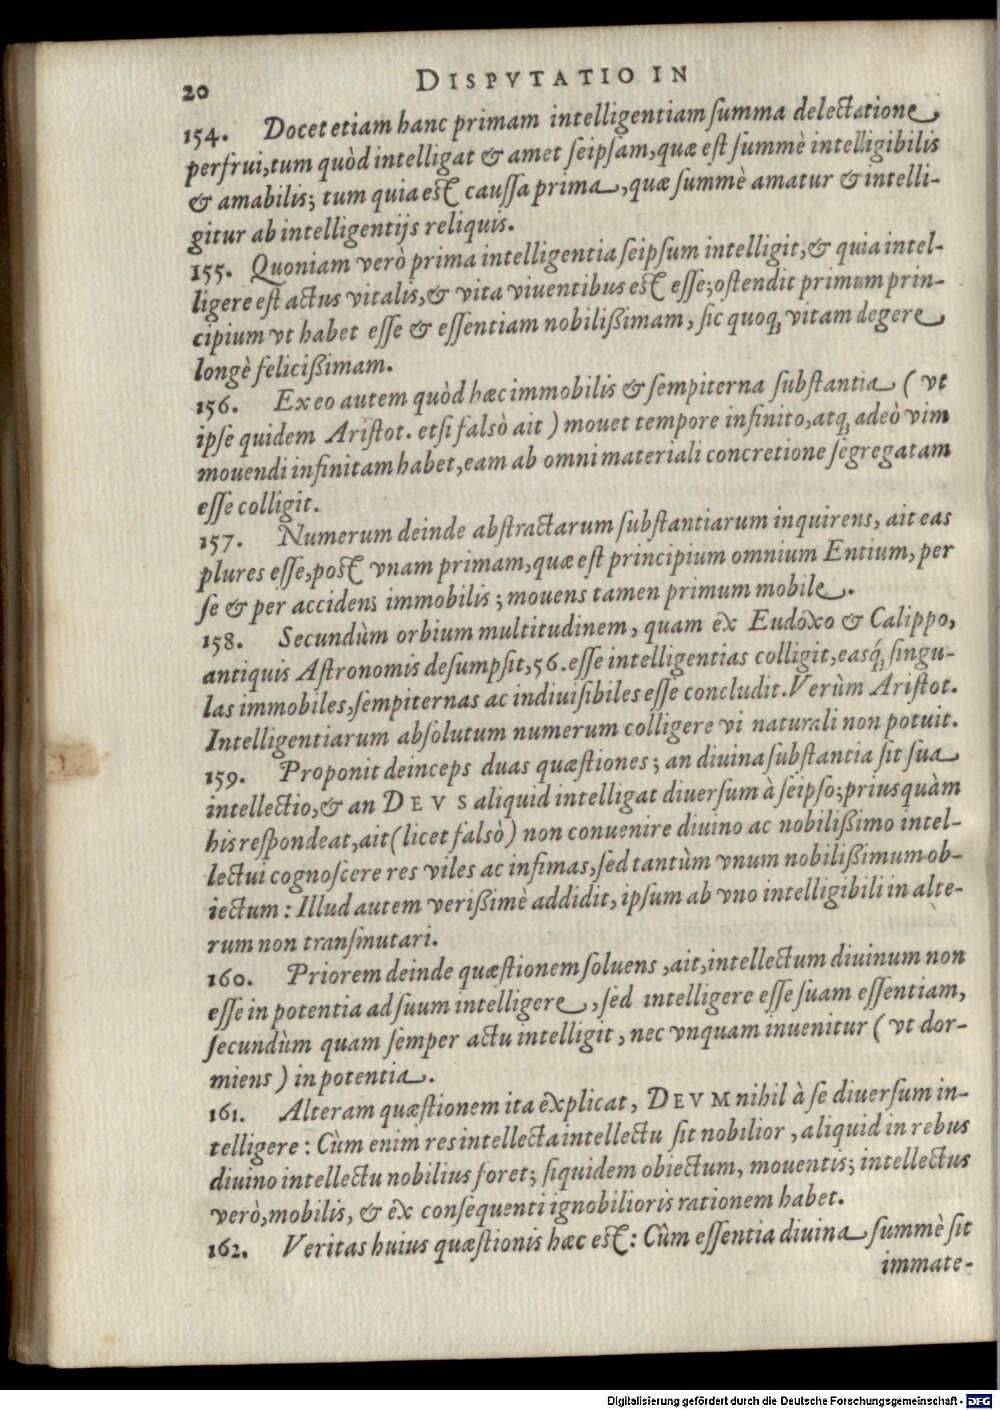 20 DISPVTATIO IN
154. Docet etiam hanc primam intelligentiam ſumma delectatione
perfrui, tum quòd intelligat & amet ſeipſam, quæ eſt ſummè intelligibilis
& amabilis; tum quia eſt cauſſa prima, quæ ſummè amatur & intelli-
gitur ab intelligentijs reliquis.
155. Quoniam verò prima intelligentia ſeipſum intelligit, & quia intel-
ligere eſt actus vitalis, & vita viuentibus eſt eſſe; oſtendit primum prin-
cipium vt habet eſſe & eſſentiam nobilißimam, ſic quoq; vitam degere
longè felicißimam.
156. Ex eo autem quòd hæc immobilis & ſempiterna ſubſtantia (vt
ipſe quidem Ariſtot. etſi falsò ait) mouet tempore infinito, atq; adeò vim
mouendi infinitam habet, eam ab omni materiali concretione ſegregatam
eſſe colligit.
157. Numerum deinde abſtractarum ſubſtantiarum inquirens, ait eas
plures eſſe, poſt vnam primam, quæ eſt principium omnium Entium, per
ſe & per accidens immobilis; mouens tamen primum mobile.
158. Secundùm orbium multitudinem, quam ex Eudoxo & Calippo,
antiquis Aſtronomis deſumpſit, 56. eſſe intelligentias colligit, easq́; ſingu-
las immobiles, ſempiternas ac indiuiſibiles eſſe concludit. Verùm Ariſtot.
Intelligentiarum abſolutum numerum colligere vi naturali non potuit.
159. Proponit deinceps duas quæſtiones; an diuina ſubſtantia ſit ſua
intellectio, & an DEVS aliquid intelligat diuerſum à ſeipſo; priusquàm
his reſpondeat, ait (licet falsò) non conuenire diuino ac nobilißimo intel-
lectui cognoſcere res viles ac infimas, ſed tantùm vnum nobilißimum ob-
iectum: Illud autem verißimè addidit, ipſum ab vno intelligibili in alte-
rum non tranſmutari.
160. Priorem deinde quæſtionem ſoluens, ait, intellectum diuinum non
eſſe in potentia ad ſuum intelligere, ſed intelligere eſſe ſuam eſſentiam,
ſecundùm quam ſemper actu intelligit, nec vnquam inuenitur (vt dor-
miens) in potentia.
161. Alteram quæſtionem ita explicat, DEVM nihil à ſe diuerſum in-
telligere: Cùm enim res intellecta intellectu ſit nobilior, aliquid in rebus
diuino intellectu nobilius foret; ſiquidem obiectum, mouentis; intellectus
verò, mobilis, & ex conſequenti ignobilioris rationem habet.
162. Veritas huius quæſtionis hæc eſt: Cùm eſſentia diuina ſummè ſit
immate-
Digitalisierung gefördert durch die Deutsche Forschungsgemeinschaft - DFG